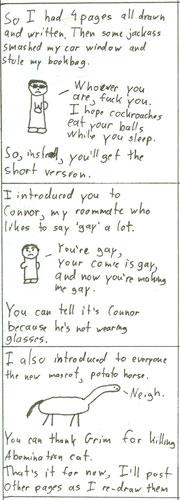 So I had 4 pages all drawn
and written. Then some jackass
smashed my car window and
stole my bookbag.
Whoever you
are, fuck you.
I hope cockroaches
eat your balls
while you sleep.
So, instead, you'll get the
short version.
I introduced you to
Connor, my roommate who
likes to say 'gay' a lot.
You're gay,
your comic is gay,
and now you're making
me gay.
You can tell it's Connor
because he's not wearing
glasses.
I also introduced to everyone
the new mascot, potato horse.
Neigh.
You can thank Grim for killing
Abomination cat.
That's it for now, I'll post
other pages as I re-draw them